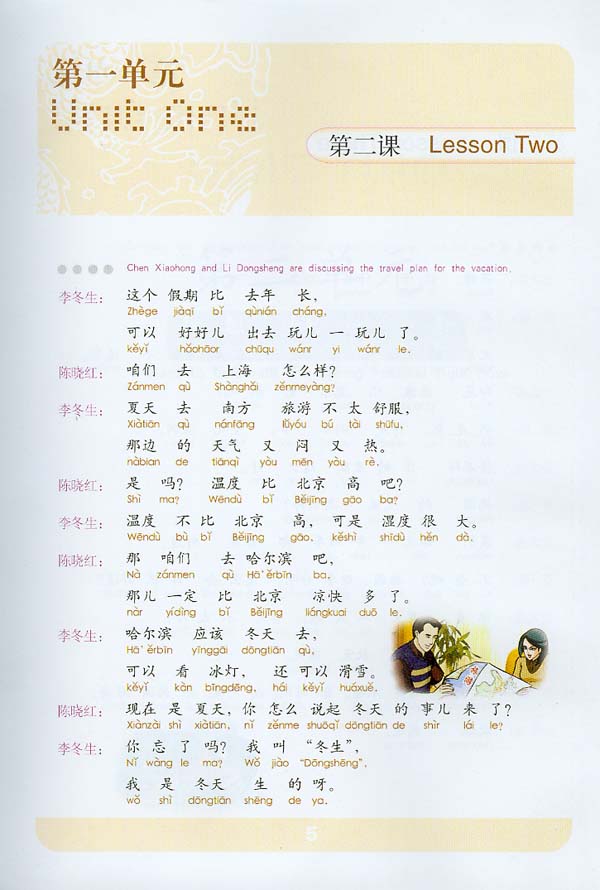 第一单元
Unit One
第二课 Lesson Two
Chen Xiaohong and Li Dongsheng are discussing the travel plan for the vacation.
李冬生： 这个 假期 比 去年 长，
Zhège jiàqī bǐ qùnián cháng,
可以 好好儿 出去 玩儿 一 玩儿 了。
kěyǐ hǎohāor chūqu wánr yi wánr le.
陈晓红： 咱们 去 上海 怎么样？
Zánmen qù Shànghǎi zěnmeyàng?
李冬生： 夏天 去 南方 旅游 不 太 舒服，
Xiàtiān qù nánfāng lǚyóu bú tài shūfu,
那边 的 天气 又 闷 又 热。
nàbian de tiānqì yòu mēn yòu rè.
陈晓红： 是 吗？ 温度 比 北京 高 吧？
Shì ma? Wēndù bǐ Běijīng gāo ba?
李冬生： 温度 不 比 北京 高，可是 湿度 很 大。
Wēndù bù bǐ Běijīng gāo, kěshì shīdù hěn dà.
陈晓红： 那 咱们 去 哈尔滨 吧，
Nà zánmen qù Hā'ěrbīn ba,
那儿 一定 比 北京 凉快 多 了。
nàr yídìng bǐ Běijīng liángkuai duō le.
李冬生： 哈尔滨 应该 冬天 去，
Hā'ěrbīn yīnggāi dōngtiān qù,
可以 看 冰灯，还 可以 滑雪。
kěyǐ kàn bīngdēng, hái kěyǐ huáxuě.
陈晓红： 现在 是 夏天，你 怎么 说起 冬天 的 事儿 来 了？
Xiànzài shì xiàtiān, nǐ zěnme shuōqǐ dōngtiān de shìr lái le?
李冬生： 你 忘 了 吗？ 我 叫 “冬生”，
Nǐ wàng le ma? Wǒ jiào "Dōngshēng",
我 是 冬天 生 的 呀。
wǒ shì dōngtiān shēng de ya.
5